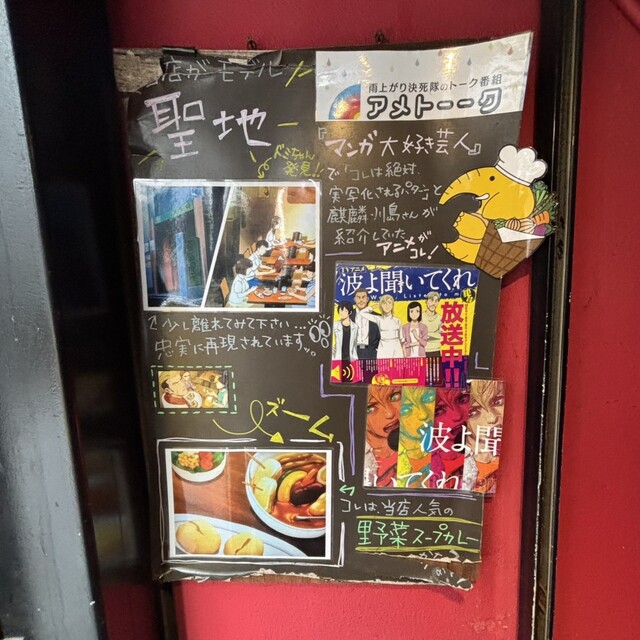 店がモデル
聖地
ドミちゃん
発見!!
雨上がり決死隊のトーク番組
アメトーーク
『マンガ大好き芸人』
で「コレは絶対、
実写化されるパターン」と
麒麟・川島さんが
紹介していた
アニメが
コレ!
波よ聞いてくれ
放送中!!
少し離れてみて下さい…
忠実に再現されています。
ズーム
波よ聞
いてくれ
コレは、当店人気の
野菜スープカレー